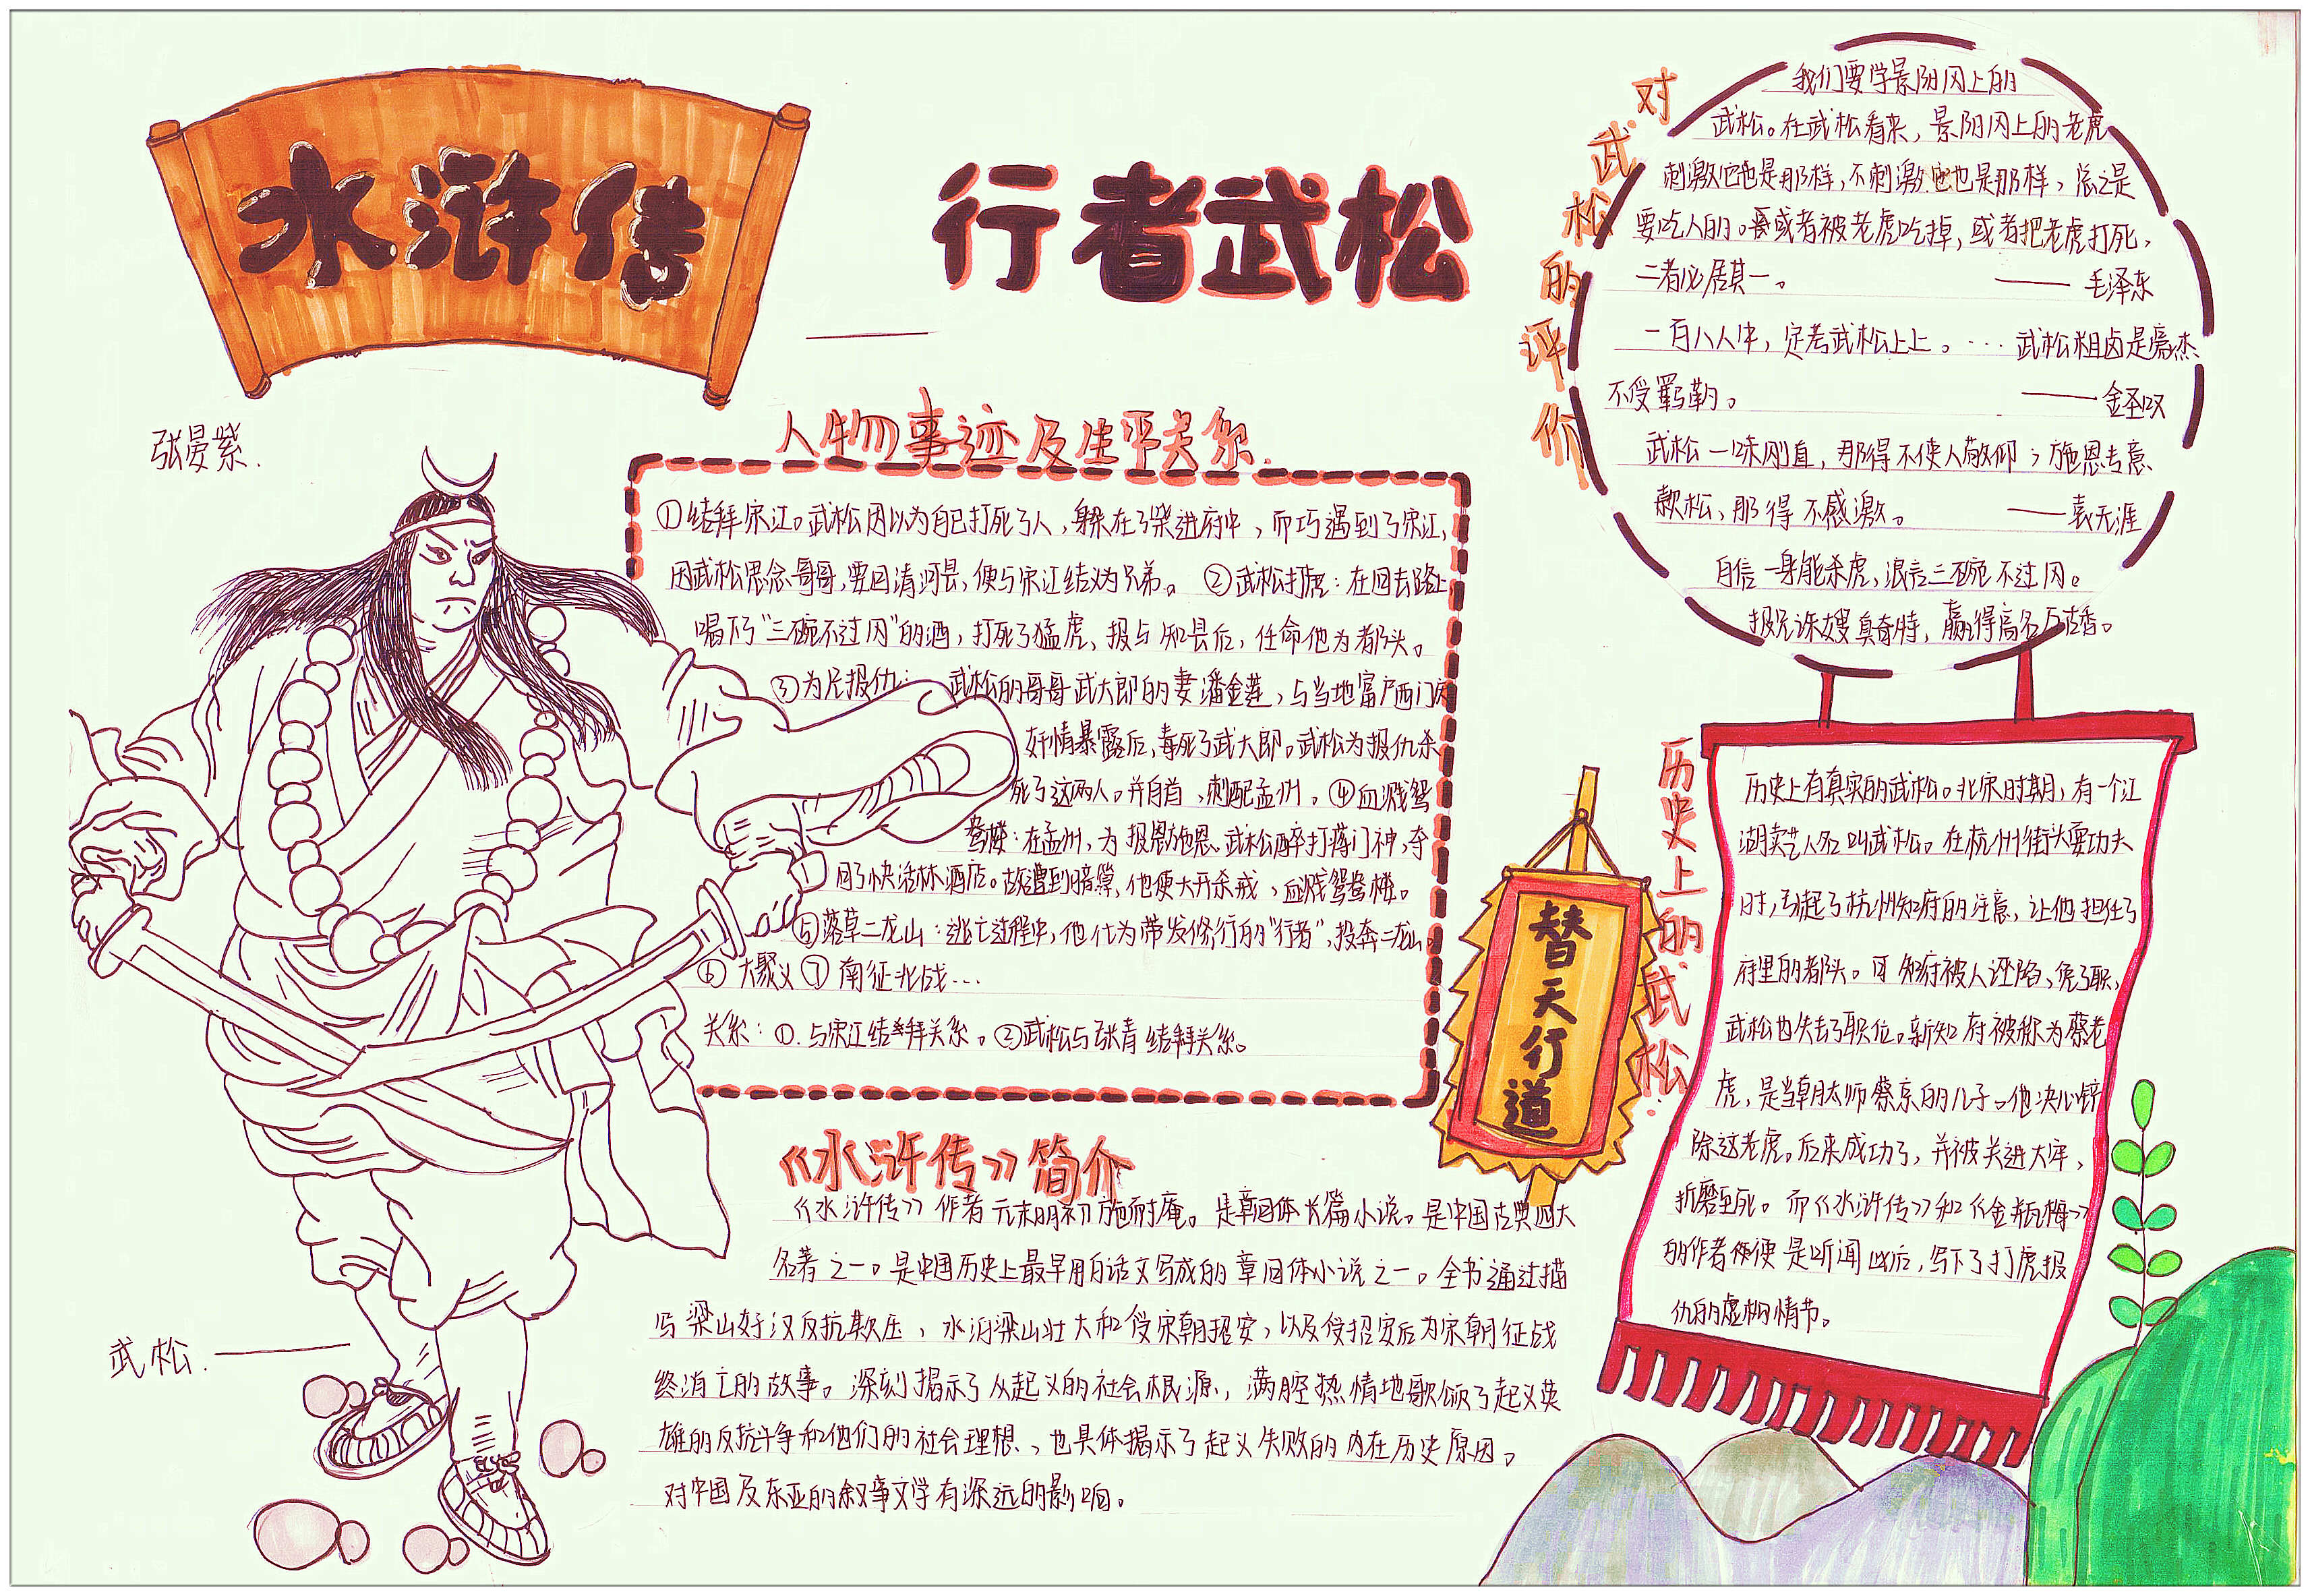 水浒传
行者武松
张晏紫.
武松.
人物事迹及生平关系.
①结拜宋江。武松因以为自己打死了人,躲在了柴进府中,而巧遇到了宋江,
因武松思念哥哥,要回清河县,便与宋江结义为兄弟。 ②武松打虎:在回去路上
喝下了“三碗不过冈”的酒,打死了猛虎、报与知县后,任命他为都头。
③为兄报仇: 武松的哥哥武大郎的妻潘金莲,与当地富户西门庆
奸情暴露后,毒死了武大郎。武松为报仇杀
死了这两人。并自首,刺配孟州。④血溅鸳
鸯楼:在孟州,为报恩施恩、武松醉打蒋门神,夺
回了快活林酒店。故遭到暗算,他便大开杀戒,血溅鸳鸯楼。
⑤落草二龙山:逃亡过程中,他化为带发修行的“行者”,投奔二龙山。
⑥ 大聚义 ⑦ 南征北战…
关系:①.与宋江结拜关系。②武松与张青结拜关系。
《水浒传》简介
《水浒传》作者元末明初施耐庵。是章回体长篇小说。是中国古典四大
名著之一。是中国历史上最早用白话文写成的章回体小说之一。全书通过描
写梁山好汉反抗欺压、水泊梁山壮大和受宋朝招安,以及受招安后为宋朝征战
终消亡的故事。深刻揭示了从起义的社会根源,满腔热情地歌颂了起义英
雄的反抗斗争和他们的社会理想、也具体揭示了起义失败的内在历史原因。
对中国及东亚的叙事文学有深远的影响。
对武松的评价
我们要学景阳冈上的
武松。在武松看来,景阳冈上的老虎
刺激它也是那样,不刺激它也是那样,总之是
要吃人的。或者被老虎吃掉,或者把老虎打死,
二者必居其一。 ——毛泽东
一百八人中,定考武松上上。…武松粗卤是豪杰
不受羁勒。 ——金圣叹
武松一味刚直,那得不使人敬仰;施恩专意
款松,那得不感激。 ——袁无涯
自信一身能杀虎,浪言三碗不过冈。
报兄诛嫂真奇特,赢得高名万古香。
替天行道
历史上的武松.
历史上有真实的武松。北宋时期,有一个江
湖卖艺人名叫武松。在杭州街头耍功夫
时,引起了杭州知府的注意,让他担任了
府里的都头。可知府被人诬陷,免了职,
武松也失去了职位。新知府被称为蔡老
虎,是当朝太师蔡京的儿子。他决心铲
除这老虎。后来成功了,并被关进大牢,
折磨至死。而《水浒传》和《金瓶梅》
的作者便是听闻此后,写下了打虎报
仇的虚构情节。